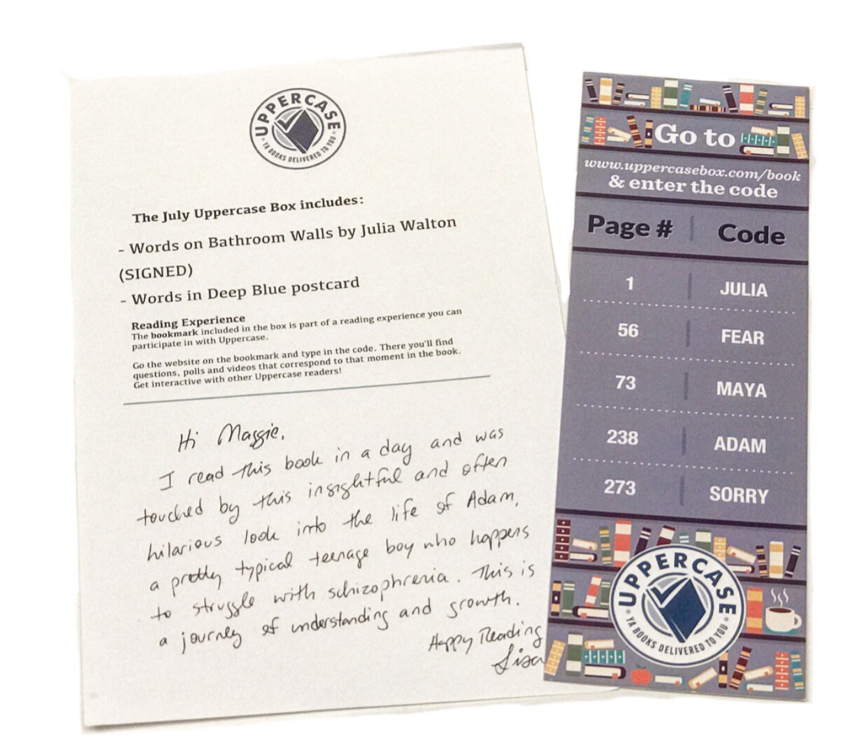 UPPERCASE
YA BOOKS DELIVERED TO YOU
The July Uppercase Box includes:
- Words on Bathroom Walls by Julia Walton
(SIGNED)
- Words in Deep Blue postcard
Reading Experience
The bookmark included in the box is part of a reading experience you can
participate in with Uppercase.
Go the website on the bookmark and type in the code. There you'll find
questions, polls and videos that correspond to that moment in the book.
Get interactive with other Uppercase readers!
Hi Maggie,
I read this book in a day and was
touched by this insightful and often
hilarious look into the life of Adam,
a pretty typical teenage boy who happens
to struggle with schizophrenia. This is
a journey of understanding and growth.
Happy Reading
Lisa
Go to
www.uppercasebox.com/book
& enter the code
Page # Code
1 JULIA
56 FEAR
73 MAYA
238 ADAM
273 SORRY
UPPERCASE
YA BOOKS DELIVERED TO YOU